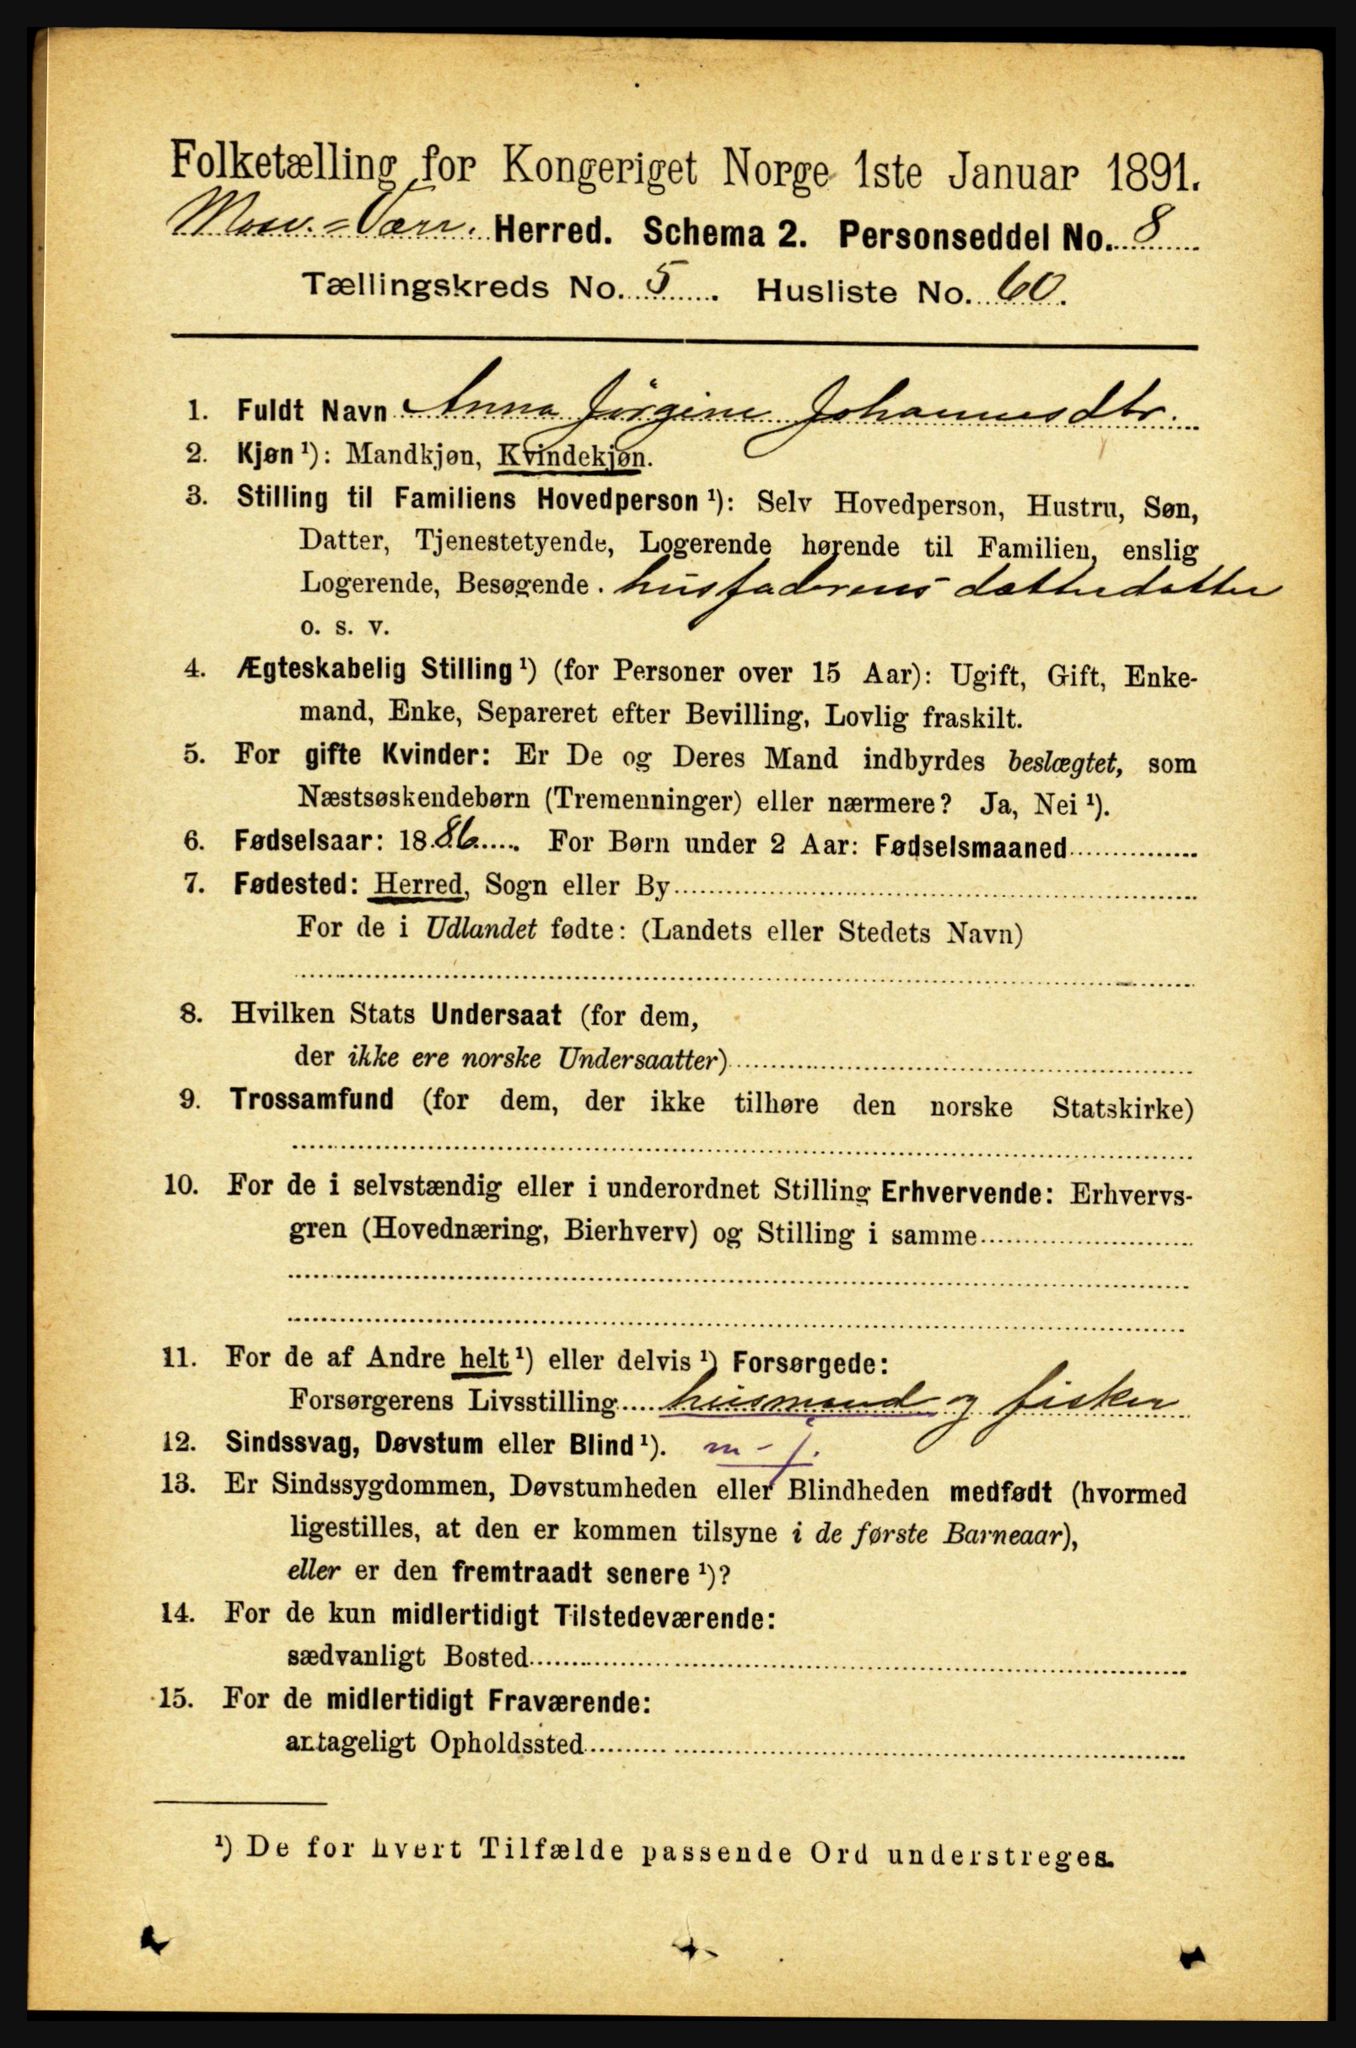 Folketælling for Kongeriget Norge 1ste Januar 1891.
Mosv.=Værr. Herred. Schema 2. Personseddel No. 8
Tællingskreds No. 5. Husliste No. 60.
1. Fuldt Navn Anna Jørgine Johannesdtr.
2. Kjøn¹): Mandkjøn, Kvindekjøn.
3. Stilling til Familiens Hovedperson¹): Selv Hovedperson, Hustru, Søn,
Datter, Tjenestetyende, Logerende hørende til Familien, enslig
Logerende, Besøgende. husfaderens datterdatter
o. s. v.
4. Ægteskabelig Stilling¹) (for Personer over 15 Aar): Ugift, Gift, Enke-
mand, Enke, Separeret efter Bevilling, Lovlig fraskilt.
5. For gifte Kvinder: Er De og Deres Mand indbyrdes beslægtet, som
Næstsøskendebørn (Tremenninger) eller nærmere? Ja, Nei¹).
6. Fødselsaar: 1886. For Børn under 2 Aar: Fødselsmaaned
7. Fødested: Herred, Sogn eller By
For de i Udlandet fødte: (Landets eller Stedets Navn)
8. Hvilken Stats Undersaat (for dem,
der ikke ere norske Undersaatter)
9. Trossamfund (for dem, der ikke tilhøre den norske Statskirke)
10. For de i selvstændig eller i underordnet Stilling Erhvervende: Erhvervs-
gren (Hovednæring, Bierhverv) og Stilling i samme
11. For de af Andre helt¹) eller delvis¹) Forsørgede:
Forsørgerens Livsstilling husmand og fisker
12. Sindssvag, Døvstum eller Blind¹). m - j.
13. Er Sindssygdommen, Døvstumheden eller Blindheden medfødt (hvormed
ligestilles, at den er kommen tilsyne i de første Barneaar),
eller er den fremtraadt senere¹)?
14. For de kun midlertidigt Tilstedeværende:
sædvanligt Bosted
15. For de midlertidigt Fraværende:
antageligt Opholdssted
¹) De for hvert Tilfælde passende Ord understreges.